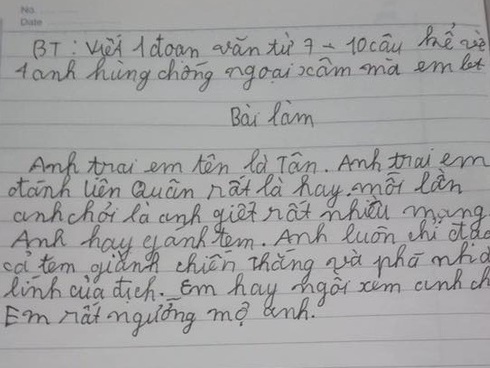 No.
Date
BT: Viết 1 đoạn văn từ 7 - 10 câu kể về
1 anh hùng chống ngoại xâm mà em bết
Bài làm
Anh trai em tên là Tân. Anh trai em
đánh liên quân rất là hay. mỗi lần
anh chơi là anh giết rất nhiều mạng
Anh hay gánh tem. Anh luôn chỉ đạo
cả tem giành chiến thắng và phá nhà
lính của địch. Em hay ngồi xem anh ch
Em rất ngưỡng mộ anh.